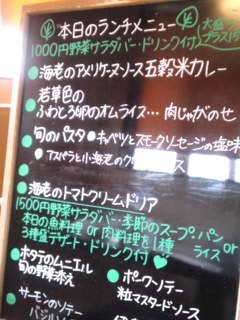 本日のランチメニュー
大盛
プラス15
1000円野菜サラダバー・ドリンク付
海老のアメリケーヌソース五穀米カレー
若草色の
ふわとろ卵のオムライス…肉じゃがのせ
旬のパスタ ●キャベツとスモークソーセージの塩味
●アスパラと小海老のク
海老のトマトクリームドリア
1500円野菜サラダバー・季節のスープ。パン or ライス
本日の魚料理 or 肉料理を1種
3種盛デザート・ドリンク付
ホタテのムニエル
旬の野菜添え
ポークソテー
粒マスタードソース
サーモンのソテー
バジル